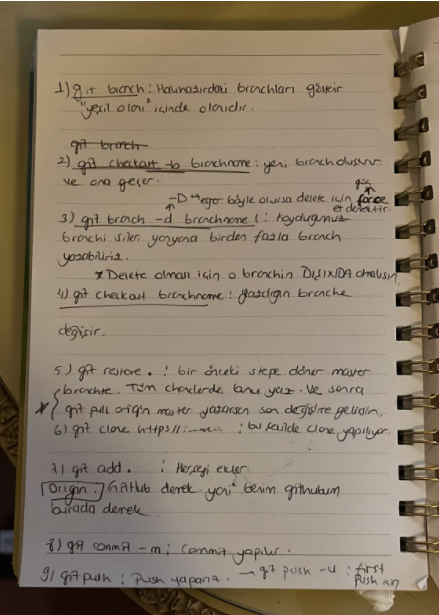 1) git branch : Halihazırdaki branchları gösterir
"yeşil olan" içinde olanıdır.
git branch
2) git checkout -b branchname : yeni branch oluşturur
ve ona geçer.
-D eger böyle olursa delete için force
et demektir.
3) git branch -d branchname :
branchi siler. yanyana birden fazla branch
yazabiliriz.
* Delete olması için o branchin DIŞINDA olmalısın.
4) git checkout branchname : yazdığın branche
değişir.
5.) git restore . : bir önceki stepe döner master
branchte. Tüm bunu yaz. ve sonra
* git pull origin master yazarsan son değişime gelirsin.
6) git clone https:// : bu şekilde clone yapılıyor.
7) git add . : Herşeyi ekler.
Origin : GitHub demek yani benim githubum
burada demek
8) git commit -m : commit yapılır.
9) git push : Push yaparız. → git push -u : first
push için